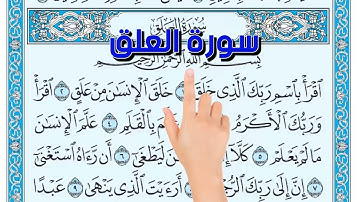 سُورَةُ العَلَق
سورة العلق
بِسْمِ اللَّهِ الرَّحْمَٰنِ الرَّحِيمِ
ٱقْرَأْ بِٱسْمِ رَبِّكَ ٱلَّذِى خَلَقَ خَلَقَ ٱلْإِنسَٰنَ مِنْ عَلَقٍ ٢ ٱقْرَأْ
وَرَبُّكَ ٱلْأَكْرَمُ بِٱلْقَلَمِ ٤ عَلَّمَ ٱلْإِنسَٰنَ
مَا لَمْ يَعْلَمْ ٥ كَلَّآ إِنَّ لَيَطْغَىٰٓ ٦ أَن رَّءَاهُ ٱسْتَغْنَىٰٓ
٧ إِنَّ إِلَىٰ رَبِّكَ أَرَءَيْتَ ٱلَّذِى يَنْهَىٰ ٩ عَبْدًا